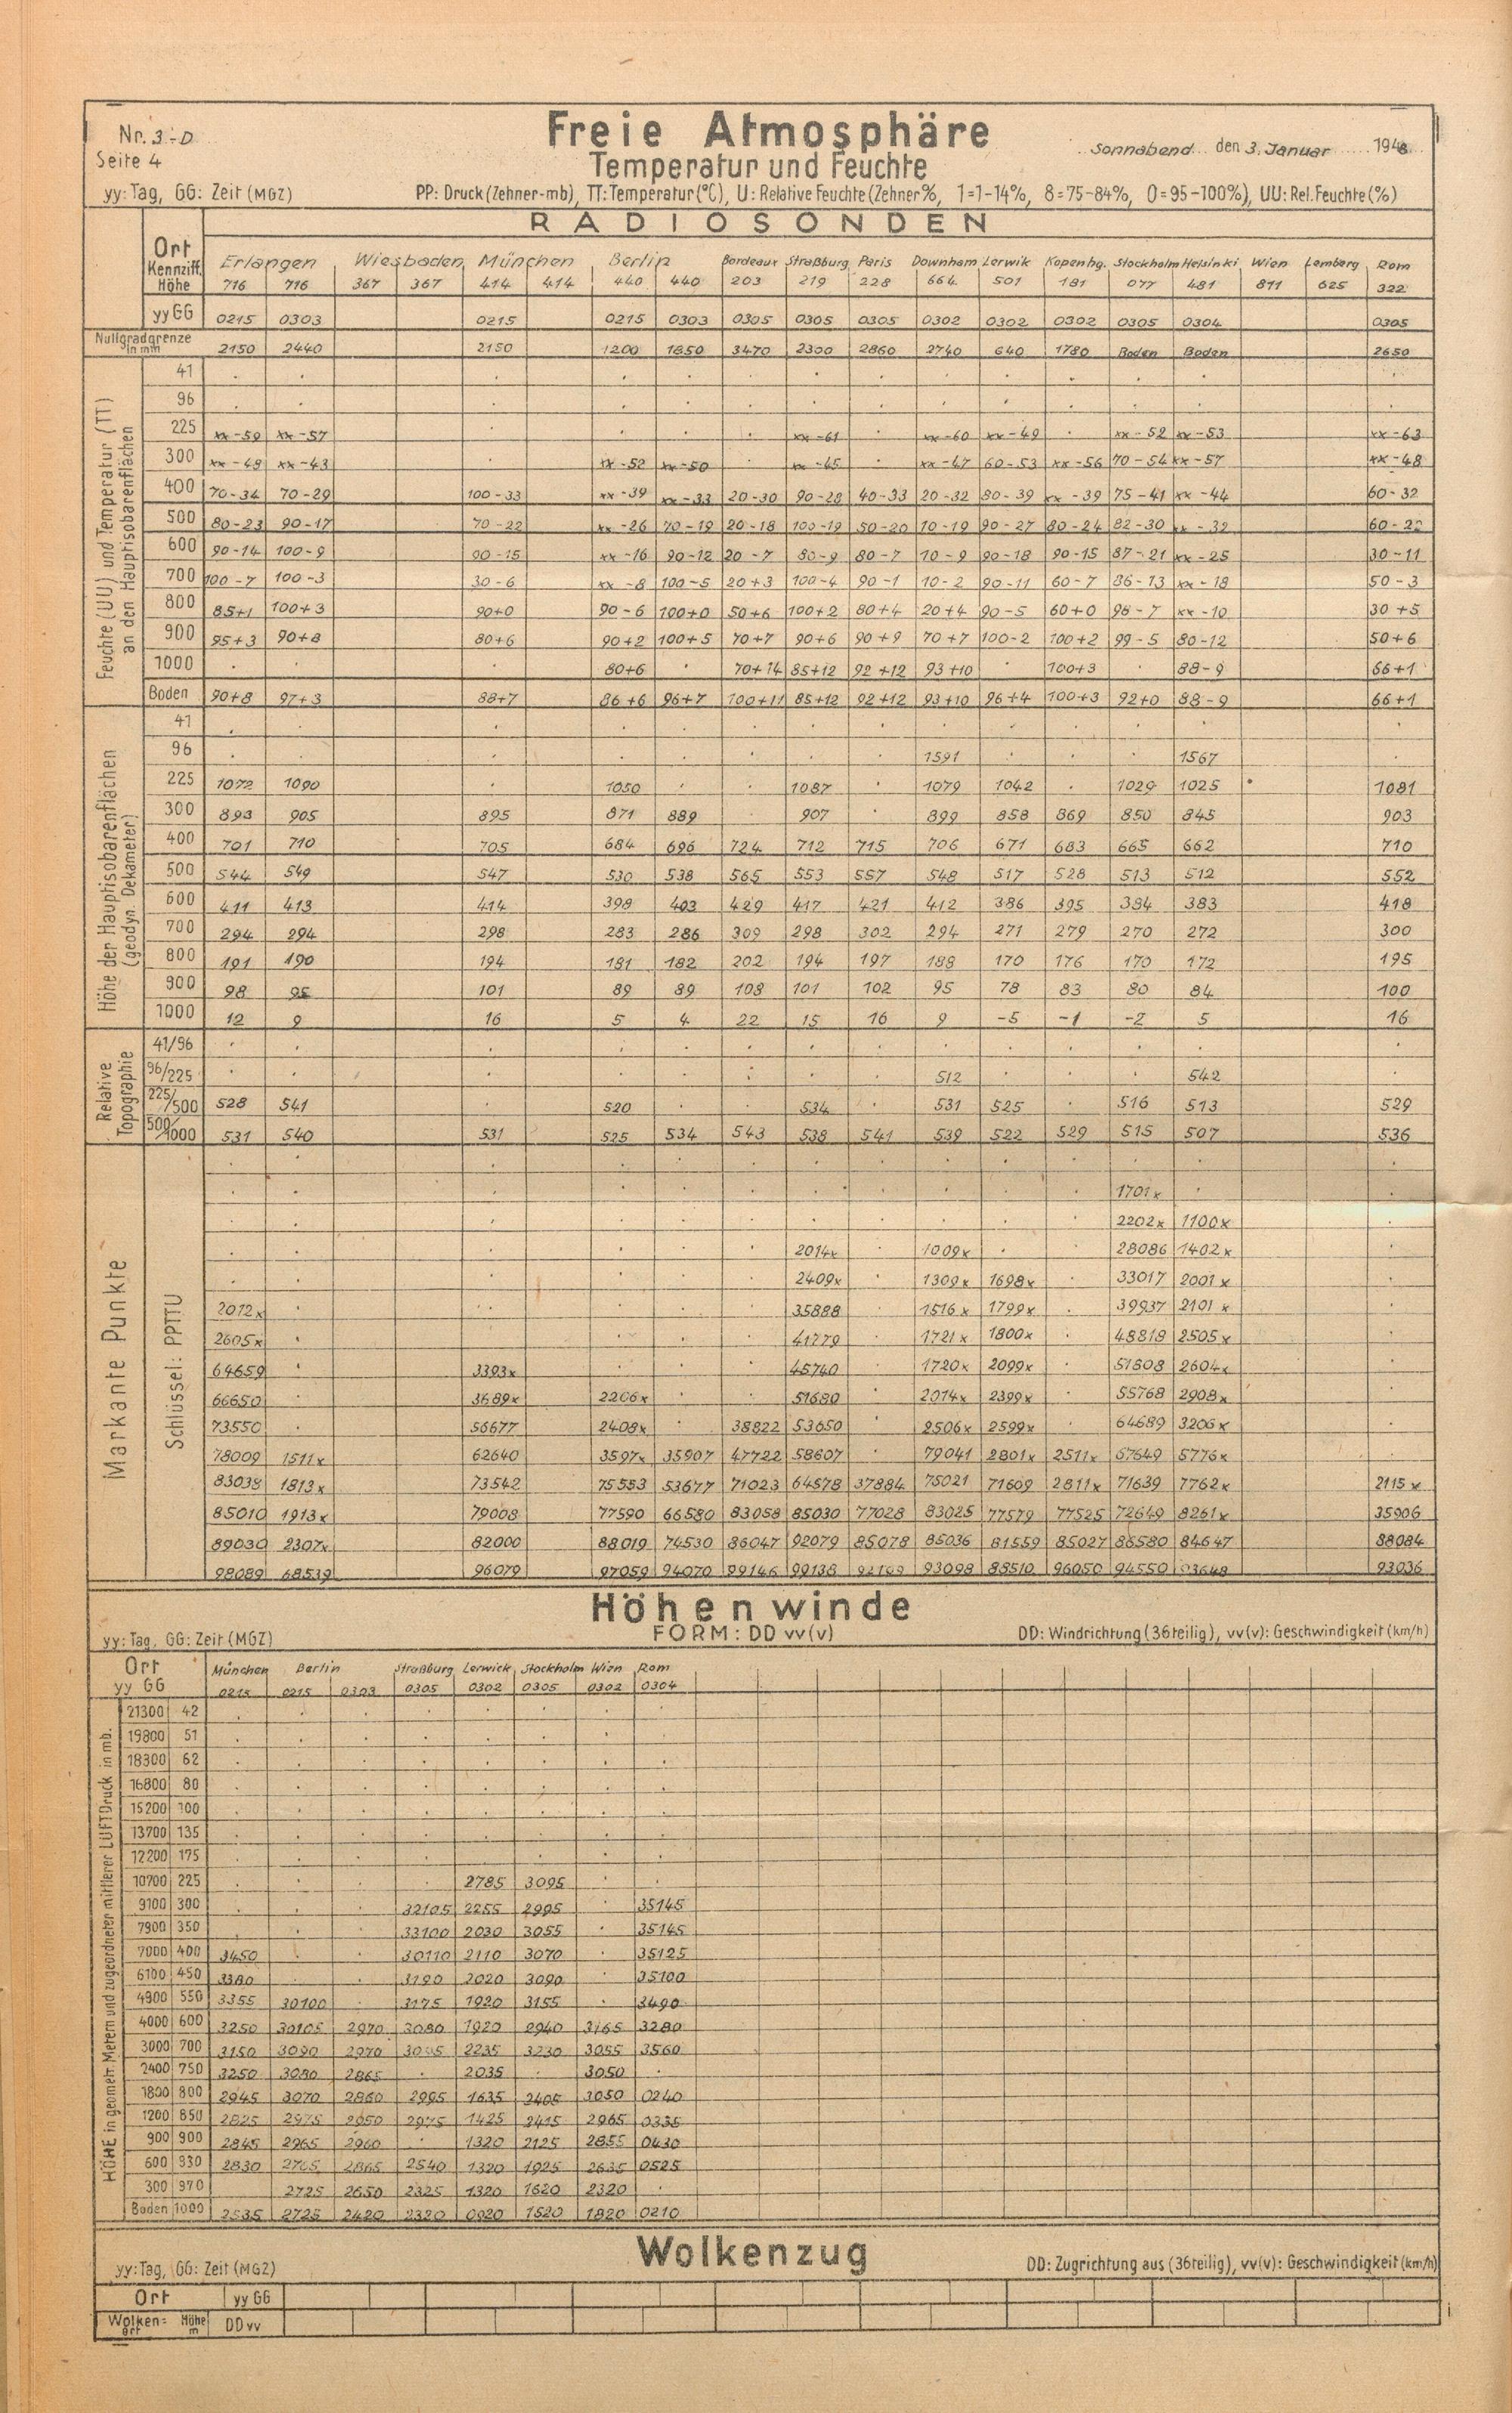 Nr. 3-D
Seite 4
Freie Atmosphäre
Temperatur und Feuchte
Sonnabend den 3. Januar 1948
yy: Tag, GG: Zeit (MGZ) PP: Druck (Zehner-mb), TT: Temperatur (°C), U: Relative Feuchte (Zehner %, 1=1-14%, 8=75-84%, 0=95-100%), UU: Rel. Feuchte (%)
RADIOSONDEN
Ort Erlangen Wiesbaden München Berlin Bordeaux Straßburg Paris Downham Lerwik Kopenhg. Stockholm Helsinki Wien Lemberg Rom
Kennziff. Höhe 716 716 367 367 414 414 440 440 203 219 228 664 501 181 077 481 811 625 322
yy GG 0215 0303 0215 0215 0303 0305 0305 0305 0302 0302 0302 0305 0304 0305
Nullgradgrenze in mm 2150 2440 2150 1200 1850 3470 2300 2860 2740 640 1780 Boden Boden 2650
Feuchte (UU) und Temperatur (TT) an den Hauptisobarenflächen
41
96
225 xx-59 xx-57 xx-61 xx-60 xx-49 xx-52 xx-53 xx-63
300 xx-48 xx-43 xx-52 xx-50 xx-45 xx-47 60-53 xx-56 70-54 xx-57 xx-48
400 70-34 70-29 100-33 xx-39 xx-33 20-30 90-28 40-33 20-32 80-39 xx-39 75-41 xx-44 60-32
500 80-23 90-17 70-22 xx-26 70-19 20-18 100-19 50-20 10-19 90-27 80-24 82-30 xx-32 60-22
600 90-14 100-9 90-15 xx-16 90-12 20-7 80-9 80-7 10-9 90-18 90-15 87-21 xx-25 30-11
700 100-7 100-3 30-6 xx-8 100-5 20+3 100-4 90-1 10-2 90-11 60-7 86-13 xx-18 50-3
800 85+1 100+3 90+0 90-6 100+0 50+6 100+2 80+4 20+4 90-5 60+0 98-7 xx-10 30+5
900 95+3 90+8 80+6 90+2 100+5 70+7 90+6 90+9 70+7 100-2 100+2 99-5 80-12 50+6
1000 80+6 70+14 85+12 92+12 93+10 100+3 88-9 66+1
Boden 90+8 97+3 88+7 86+6 96+7 100+11 85+12 92+12 93+10 96+4 100+3 92+0 88-9 66+1
Höhe der Hauptisobarenflächen (geodyn. Dekameter)
41
96 1591 1567
225 1072 1090 1050 1087 1079 1042 1029 1025 1081
300 893 905 895 871 889 907 899 858 869 850 845 903
400 701 710 705 684 696 724 712 715 706 671 683 665 662 710
500 544 549 547 530 538 565 553 557 548 517 528 513 512 552
600 411 413 414 398 403 429 417 421 412 386 395 384 383 418
700 294 294 298 283 286 309 298 302 294 271 279 270 272 300
800 191 190 194 181 182 202 194 197 188 170 176 170 172 195
900 98 95 101 89 89 108 101 102 95 78 83 80 84 100
1000 12 9 16 5 4 22 15 16 9 -5 -1 -2 5 16
Relative Topographie
41/96
96/225 512 542
225/500 528 541 520 534 531 525 516 513 529
500/1000 531 540 531 525 534 543 538 541 539 522 529 515 507 536
Markante Punkte
Schlüssel: PPTTU
1701x
2202x 1100x
2014x 1009x 28086 1402x
2409x 1309x 1698x 33017 2001x
2012x 35888 1516x 1799x 39937 2101x
2605x 41779 1721x 1800x 48818 2505x
64659 3393x 45740 1720x 2099x 51808 2604x
66650 3689x 2206x 51680 2014x 2399x 55768 2908x
73550 56677 2408x 38822 53650 2506x 2599x 64689 3206x
78009 1511x 62640 3597x 35907 47722 58607 79041 2801x 2511x 67649 5776x
83038 1813x 73542 75553 53677 71023 64578 37884 75021 71609 2811x 71639 7762x 2115x
85010 1913x 79008 77590 66580 83058 85030 77028 83025 77579 77525 72649 8261x 35906
89030 2307x 82000 88019 74530 86047 92079 85078 85036 81559 85027 86580 84647 88084
98089 68539 96079 97059 94070 99146 99138 92109 93098 88510 96050 94550 93648 93036
Höhenwinde
FORM: DD vv(v)
yy: Tag, GG: Zeit (MGZ) DD: Windrichtung (36teilig), vv(v): Geschwindigkeit (km/h)
Ort München Berlin Straßburg Lerwick Stockholm Wien Rom
yy GG 0215 0215 0303 0305 0302 0305 0302 0304
HÖHE in geometr. Metern und zugeordneter mittlerer LUFTDruck in mb.
21300 42
19800 51
18300 62
16800 80
15200 100
13700 135
12200 175
10700 225 2785 3095
9100 300 32105 2255 2995 35145
7900 350 33100 2030 3055 35145
7000 400 3450 30110 2110 3070 35125
6100 450 3380 3190 2020 3090 35100
4900 550 3355 30100 3175 1920 3155 3490
4000 600 3250 30105 2970 3080 1920 2940 3165 3280
3000 700 3150 3090 2970 3085 2235 3230 3055 3560
2400 750 3250 3080 2865 2035 3050
1800 800 2945 3070 2860 2995 1635 2405 3050 0240
1200 850 2825 2975 2950 2975 1425 2415 2965 0335
900 900 2845 2965 2960 1320 2125 2855 0430
600 930 2830 2765 2865 2540 1320 1925 2635 0525
300 970 2725 2650 2325 1320 1620 2320
Boden 1000 2535 2725 2420 2320 0920 1520 1820 0210
Wolkenzug
yy: Tag, GG: Zeit (MGZ) DD: Zugrichtung aus (36teilig), vv(v): Geschwindigkeit (km/h)
Ort yy GG
Wolken= art Höhe m DD vv